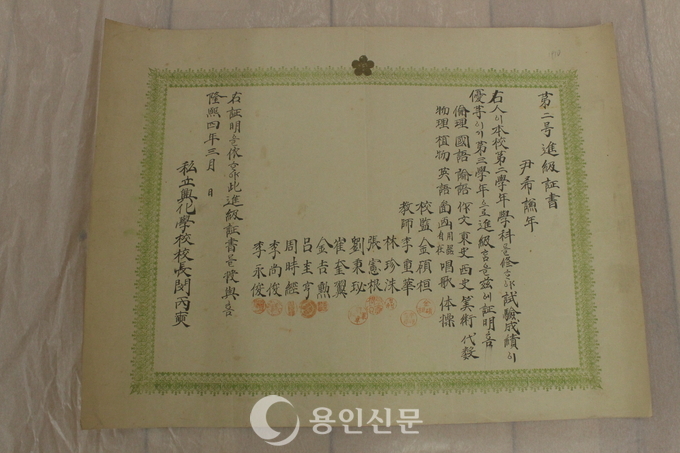 第二号進級証書
尹希謙年
右人이本校第二學年學科를修ᄒᆞ야試驗成績이
優等이기第三學年으로進級ᄒᆞᆷ을玆에証明홈
倫理 國語 論語 作文 東史 西史 算術 代數
物理 植物 英語 圖画 唱歌 体操
校監 金碩桓
教師 李重華
林珍洙
張憲根
劉秉珌
崔奎翼
金吉勲
呂圭亨
周時經
李尚俊
李永俊
右証明을依ᄒᆞ야此進級証書를授與홈
隆熙四年三月 日
私立興化學校校長閔丙奭
용인신문